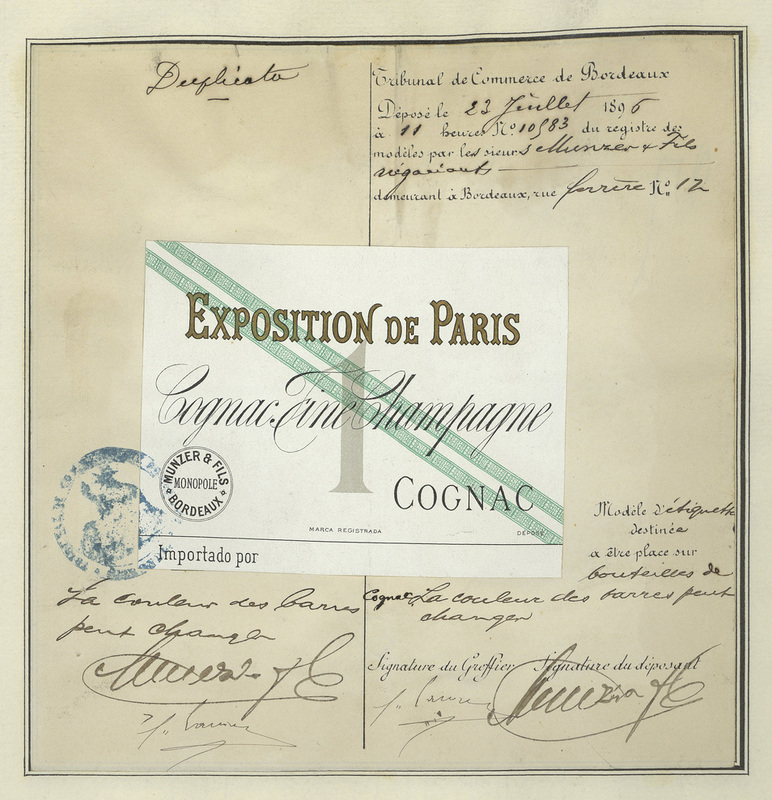 Duplicata
Tribunal de Commerce de Bordeaux
Déposé le 23 Juillet 1896
à 11 heures No 10583 du registre des
modèles par les sieurs Munzer & Fils
négociants
demeurant à Bordeaux, rue Ferrère No 12
EXPOSITION DE PARIS
1
Cognac. Fine Champagne
MUNZER & FILS
MONOPOLE
BORDEAUX
COGNAC
MARCA REGISTRADA
DÉPOSÉ
Importado por
Modèle d'étiquette
destinée
a être place sur
bouteilles de
Cognac. La couleur des barres peut
changer
La couleur des barres
peut changer
Signature du Greffier
Signature du déposant